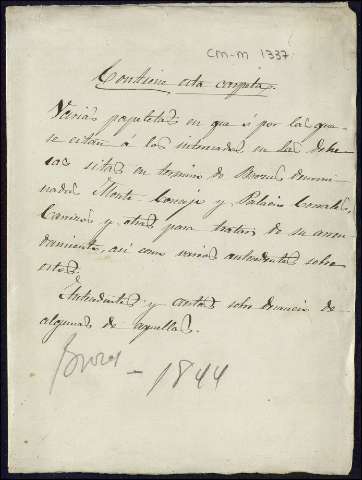 CM-M 1337
Contiene esta carpeta.
Varias papeletas en que si por las que
se citan á los interesados en las Dehe
sas sitas en termino de Brozas, denomi
nadas Monte Concejo y Palacio Corrales,
Camison y otras para tratar de su arren
damiento, asi como varios antecedentes sobre
estos.
Antecedentes y cartas sobre denuncia de
algunas de aquellas.
Brozas - 1844